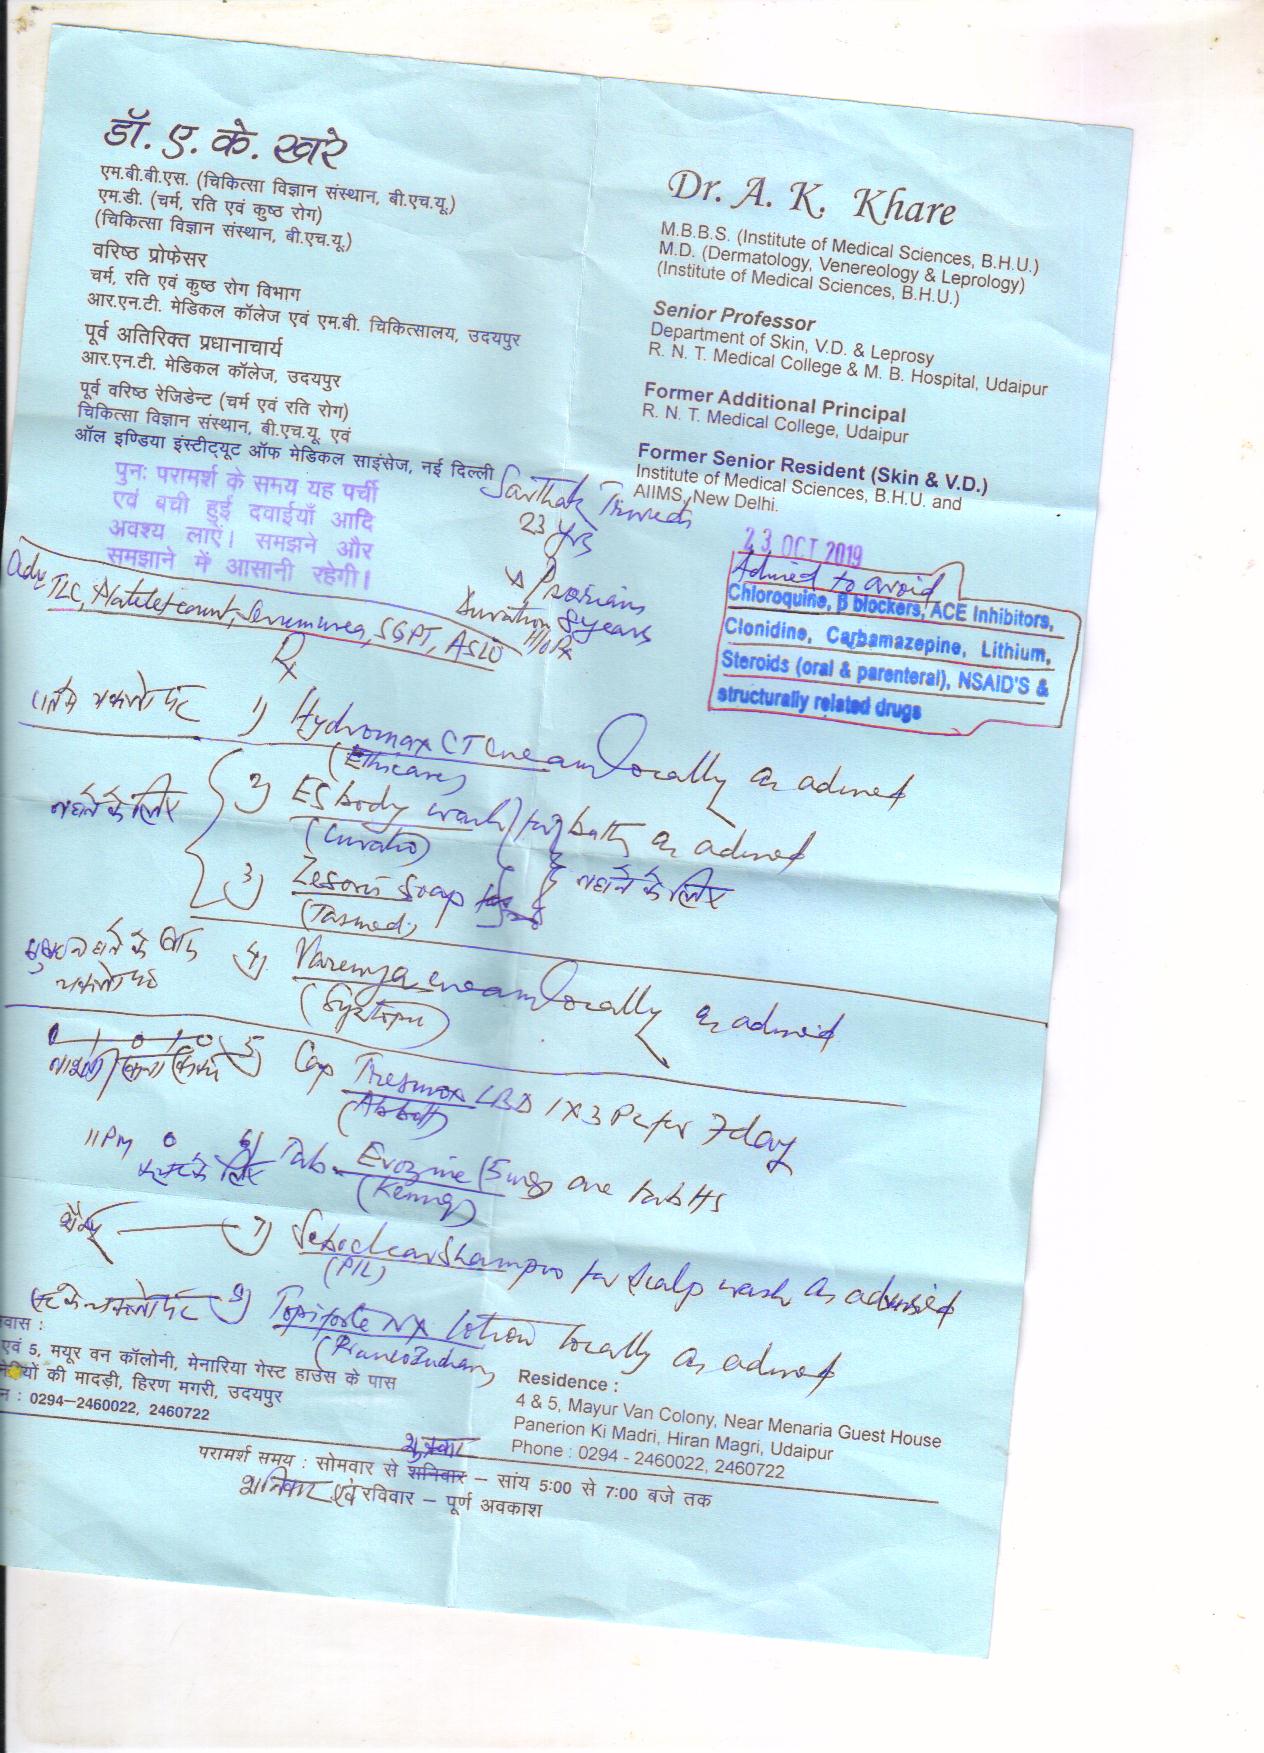 डॉ. ए. के. खरे
एम.बी.बी.एस. (चिकित्सा विज्ञान संस्थान, बी.एच.यू.)
एम.डी. (चर्म, रति एवं कुष्ठ रोग)
(चिकित्सा विज्ञान संस्थान, बी.एच.यू.)
वरिष्ठ प्रोफेसर
चर्म, रति एवं कुष्ठ रोग विभाग
आर.एन.टी. मेडिकल कॉलेज एवं एम.बी. चिकित्सालय, उदयपुर
पूर्व अतिरिक्त प्रधानाचार्य
आर.एन.टी. मेडिकल कॉलेज, उदयपुर
पूर्व वरिष्ठ रेजिडेन्ट (चर्म एवं रति रोग)
चिकित्सा विज्ञान संस्थान, बी.एच.यू. एवं
ऑल इण्डिया इंस्टीट्यूट ऑफ मेडिकल साइंसेज, नई दिल्ली
Dr. A. K. Khare
M.B.B.S. (Institute of Medical Sciences, B.H.U.)
M.D. (Dermatology, Venereology & Leprology)
(Institute of Medical Sciences, B.H.U.)
Senior Professor
Department of Skin, V.D. & Leprosy
R. N. T. Medical College & M. B. Hospital, Udaipur
Former Additional Principal
R. N. T. Medical College, Udaipur
Former Senior Resident (Skin & V.D.)
Institute of Medical Sciences, B.H.U. and
AIIMS, New Delhi.
पुनः परामर्श के समय यह पर्ची
एवं बची हुई दवाईयाँ आदि
अवश्य लाऐं। समझने और
समझाने में आसानी रहेगी।
Sarthak Trivedi
23 yrs
23 OCT 2019
Advised to avoid
Chloroquine, β blockers, ACE Inhibitors,
Clonidine, Carbamazepine, Lithium,
Steroids (oral & parenteral), NSAID'S &
structurally related drugs
Psoriasis
Duration 8 years
H/o Rx
Adv TLC, Platelet count, Serum urea, SGPT, ASLO
Rx
1) Hydromax CT cream locally as advised
(Ethicare)
नहाने के लिए
2) ES body wash for bath as advised
(Curatio)
नहाने के लिए
3) Zesoris Soap
4) Varenya cream locally as advised
5) Cap LBD 1 x 3 Pc for 7 day
(Abbott)
11 PM
6) Tab. Evozine (5mg) one tab HS
शैम्पू
7) Seboclear Shampoo for scalp wash as advised
(PIL)
8) Topiforte NX lotion locally as advised
वास :
एवं 5, मयूर वन कॉलोनी, मेनारिया गेस्ट हाउस के पास
यों की मादड़ी, हिरण मगरी, उदयपुर
न : 0294–2460022, 2460722
Residence :
4 & 5, Mayur Van Colony, Near Menaria Guest House
Panerion Ki Madri, Hiran Magri, Udaipur
Phone : 0294 - 2460022, 2460722
शुक्रवार
परामर्श समय : सोमवार से शनिवार – सांय 5:00 से 7:00 बजे तक
शनिवार एवं रविवार – पूर्ण अवकाश